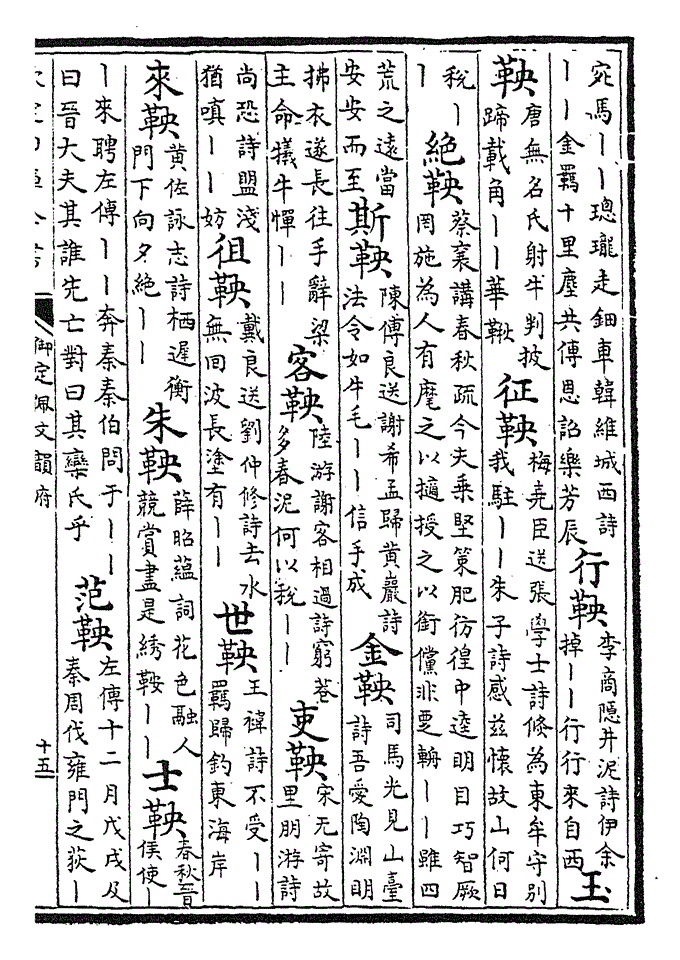 宛馬丨丨璁瓏走鈿車韓維城西詩
丨丨金羈十里塵共傳恩詔樂芳辰
行鞅
李商隱井泥詩伊余
掉丨丨行行來自西
玉
鞅
唐無名氏射牛判披
蹄載角丨丨華鞦
征鞅
梅堯臣送張學士詩倐為東牟守別
我駐丨丨朱子詩感兹懷故山何日
稅丨
丨
絶鞅
蔡襄講春秋疏今夫乘堅策肥彷徨中逵明目巧智厥
罔施為人有麾之以擿授之以銜儻非要輈丨丨雖四
荒之遠當
安安而至
斯鞅
陳傅良送謝希孟歸黃巖詩
法令如牛毛丨丨信手成
金鞅
司馬光見山臺
詩吾愛陶淵明
拂衣遂長往手辭梁
主命犧牛憚丨丨
客鞅
陸游謝客相過詩窮巷
多春泥何以稅丨丨
吏鞅
宋无寄故
里朋游詩
尚恐詩盟淺
猶嗔丨丨妨
徂鞅
戴良送劉仲修詩去水
無回波長塗有丨丨
世鞅
王褘詩不受丨丨
羈歸釣東海岸
來鞅
黄佐詠志詩栖遲衡
門下向夕絶丨丨
朱鞅
薛昭蘊詞花色融人
競賞盡是綉鞍丨丨
士鞅
春秋晉
侯使丨
丨來聘左傳丨丨奔秦秦伯問于丨丨
曰晉大夫其誰先亡對曰其欒氏乎
范鞅
左傳十二月戊戌及
秦周伐雍門之荻丨
御定佩文韻府
十五